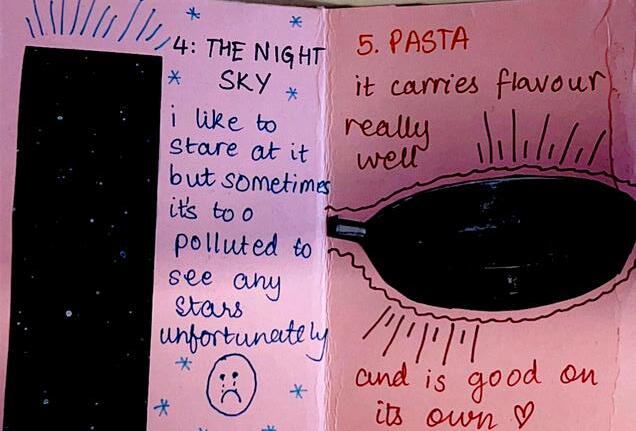 4: THE NIGHT
SKY
i like to
stare at it
but sometimes
it's too
polluted to
see any
stars
unfortunately
5. PASTA
it carries flavour
really
well
and is good on
its own ♡